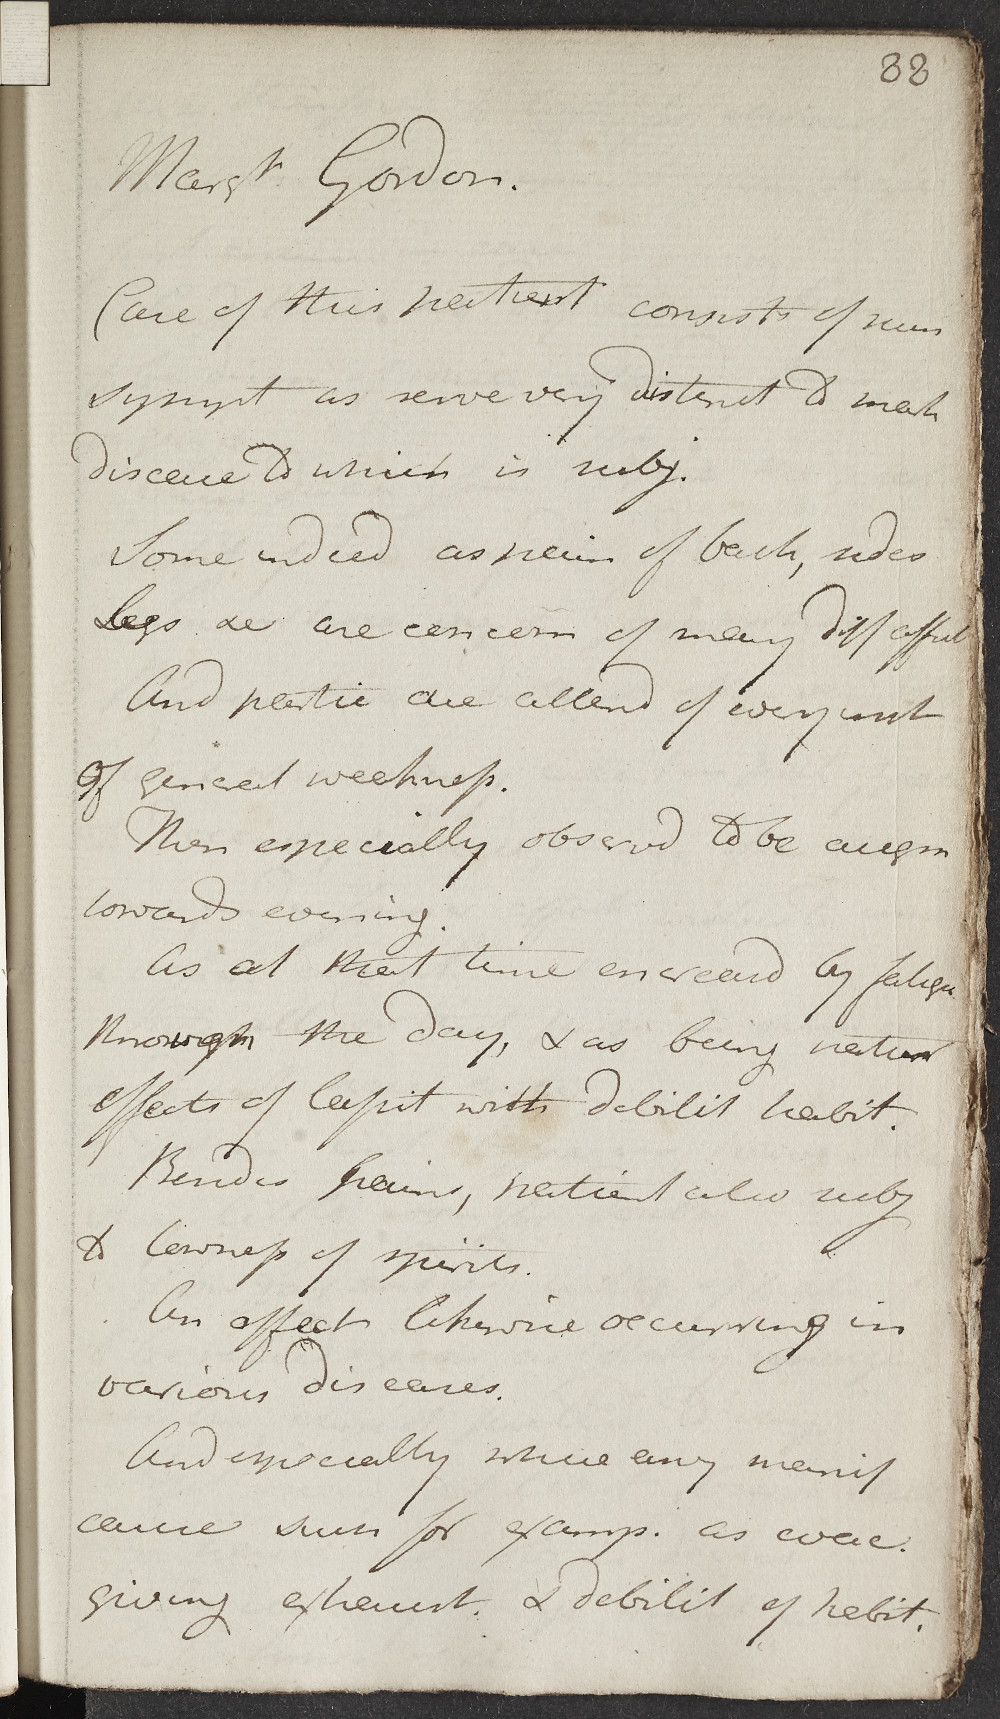 88
Margt Gordon.
Case of this patient consists of such
sympt as serve very distinct to mark
disease to which is subj.
Some indeed as pain of back, sides
legs &c are concom of many diff affect
And partic are attend of every
Of general weakness.
Then especially observd to be augm
towards evening.
As at that time encreasd by fatigu
through the day, & as being natur
effects of with debilit habit.
Besides pains, patient also subj
to lowness of spirits.
An affect likewise occurring in
various diseases.
And especially where any manif
cause such for examp. as evac.
giving exhaust. & debilit of habit.